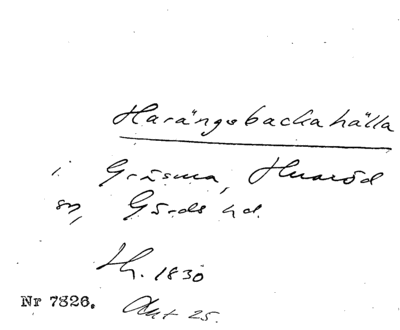 Harängsbackahälla
i Gräsma, Huaröd
sn, Gärds hd.
Lh. 1830
Nr 7826. Akt 25.